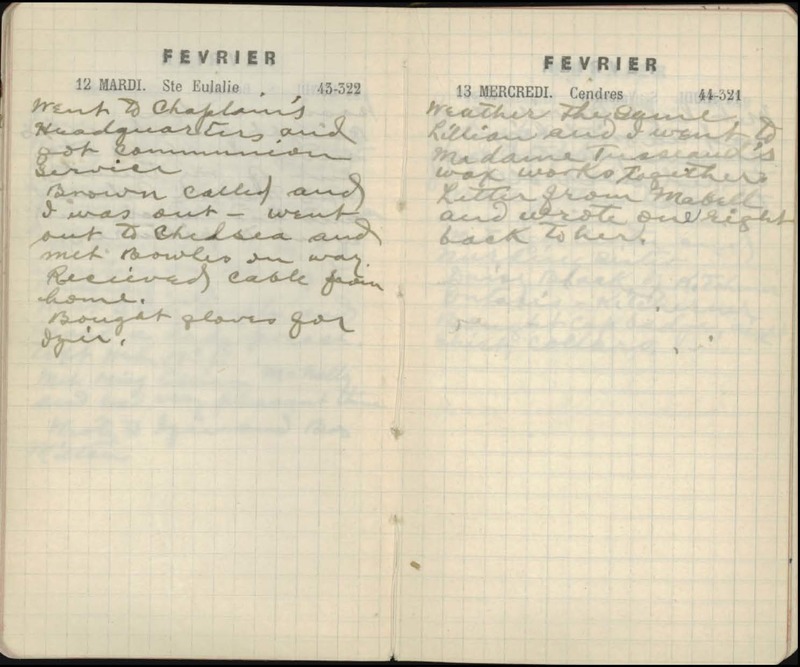 FEVRIER
12 MARDI. Ste Eulalie 43-322
Went to Chaplain's
Headquarters and
got communion
service
Brown called and
I was out - went
out to Chelsea and
met Bowles on way.
Recieved cable from
home.
Bought gloves for
FEVRIER
13 MERCREDI. Cendres 44-321
Weather the same
Lillian and I went to
Madame Tusseaud's
wax works together.
Letter from Mabell
and wrote one right
back to her.